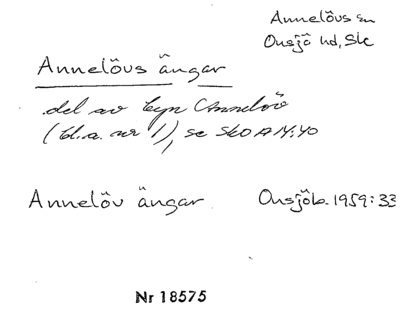 Annelövs sn
Onsjö hd, Sk
Annelövs ängar
del av byn Annelöv
(bl.a. nr 1), se SkOANYO
Annelöv ängar Onsjöb. 1959:33
Nr 18575